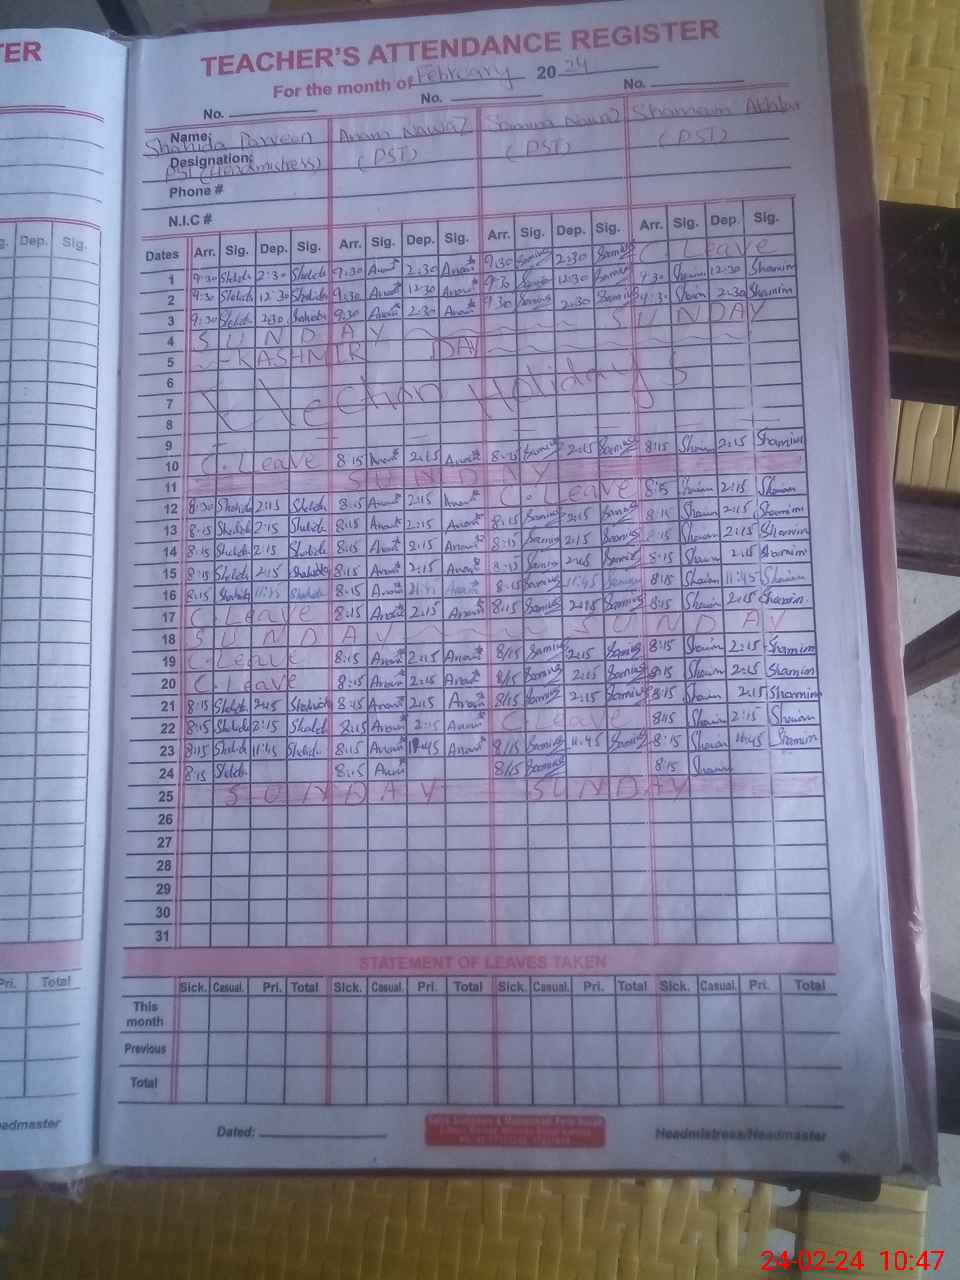 TER
TEACHER'S ATTENDANCE REGISTER
For the month of February 2024
No. No. No.
Name: Shahida Parveen Anam Nawaz Samina Nawaz Shamim Akhtar
Designation: PST (Headmistress) (PST) (PST) (PST)
Phone #
N.I.C #
Dates Arr. Sig. Dep. Sig. Arr. Sig. Dep. Sig. Arr. Sig. Dep. Sig. Arr. Sig. Dep. Sig.
g. Dep. Sig.
1 9:30 Shahida 2:30 Shahida 9:30 Anam 2:30 Anam 9:30 Samina 2:30 Samina C. Leave
2 9:30 Shahida 12:30 Shahida 9:30 Anam 12:30 Anam 9:30 Samina 12:30 Samina 9:30 Shamim 12:30 Shamim
3 9:30 Shahida 2:30 Shahida 9:30 Anam 2:30 Anam 9:30 Samina 2:30 Samina 9:30 Shamim 2:30 Shamim
4 SUNDAY SUNDAY
5 KASHMIR DAY
6
7 Election Holidays
8
9
10 C. Leave 8:15 Anam 2:15 Anam 8:15 Samina 2:15 Samina 8:15 Shamim 2:15 Shamim
11 SUNDAY
12 8:30 Shahida 2:15 Shahida 8:15 Anam 2:15 Anam C. Leave 8:15 Shamim 2:15 Shamim
13 8:15 Shahida 2:15 Shahida 8:15 Anam 2:15 Anam 8:15 Samina 2:15 Samina 8:15 Shamim 2:15 Shamim
14 8:15 Shahida 2:15 Shahida 8:15 Anam 2:15 Anam 8:15 Samina 2:15 Samina 8:15 Shamim 2:15 Shamim
15 8:15 Shahida 2:15 Shahida 8:15 Anam 2:15 Anam 8:15 Samina 2:15 Samina 8:15 Shamim 2:15 Shamim
16 8:15 Shahida 11:45 Shahida 8:15 Anam 11:45 Anam 8:15 Samina 11:45 Samina 8:15 Shamim 11:45 Shamim
17 C. Leave 8:15 Anam 2:15 Anam 8:15 Samina 2:15 Samina 8:15 Shamim 2:15 Shamim
18 SUNDAY SUNDAY
19 C. Leave 8:15 Anam 2:15 Anam 8:15 Samina 2:15 Samina 8:15 Shamim 2:15 Shamim
20 C. Leave 8:15 Anam 2:15 Anam 8:15 Samina 2:15 Samina 8:15 Shamim 2:15 Shamim
21 8:15 Shahida 2:15 Shahida 8:15 Anam 2:15 Anam 8:15 Samina 2:15 Samina 8:15 Shamim 2:15 Shamim
22 8:15 Shahida 2:15 Shahida 8:15 Anam 2:15 Anam C. Leave 8:15 Shamim 2:15 Shamim
23 8:15 Shahida 11:45 Shahida 8:15 Anam 11:45 Anam 8:15 Samina 11:45 Samina 8:15 Shamim 11:45 Shamim
24 8:15 Shahida 8:15 Anam 8:15 Samina 8:15 Shamim
25 SUNDAY SUNDAY
26
27
28
29
30
31
STATEMENT OF LEAVES TAKEN
Pri. Total
Sick. Casual. Pri. Total Sick. Casual. Pri. Total Sick. Casual. Pri. Total Sick. Casual. Pri. Total
This month
Previous
Total
eadmaster
Dated: Headmistress/Headmaster
24-02-24 10:47